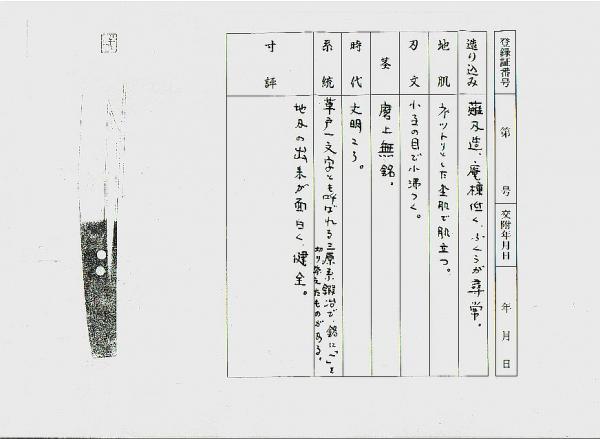 登録証番号 第 号 交附年月日 年 月 日
造り込み 薙刀造、庵棟低く、ふくらが尋常。
地肌 ネットリとした杢肌で肌立つ。
刃文 小互の目で小沸つく。
茎 磨上無銘。
時代 文明ころ。
系統 草戸一文字とも呼ばれる三原系鍛冶で、銘に「一」を
切り添えたものがある。
寸評 地刃の出来が面白く、健全。